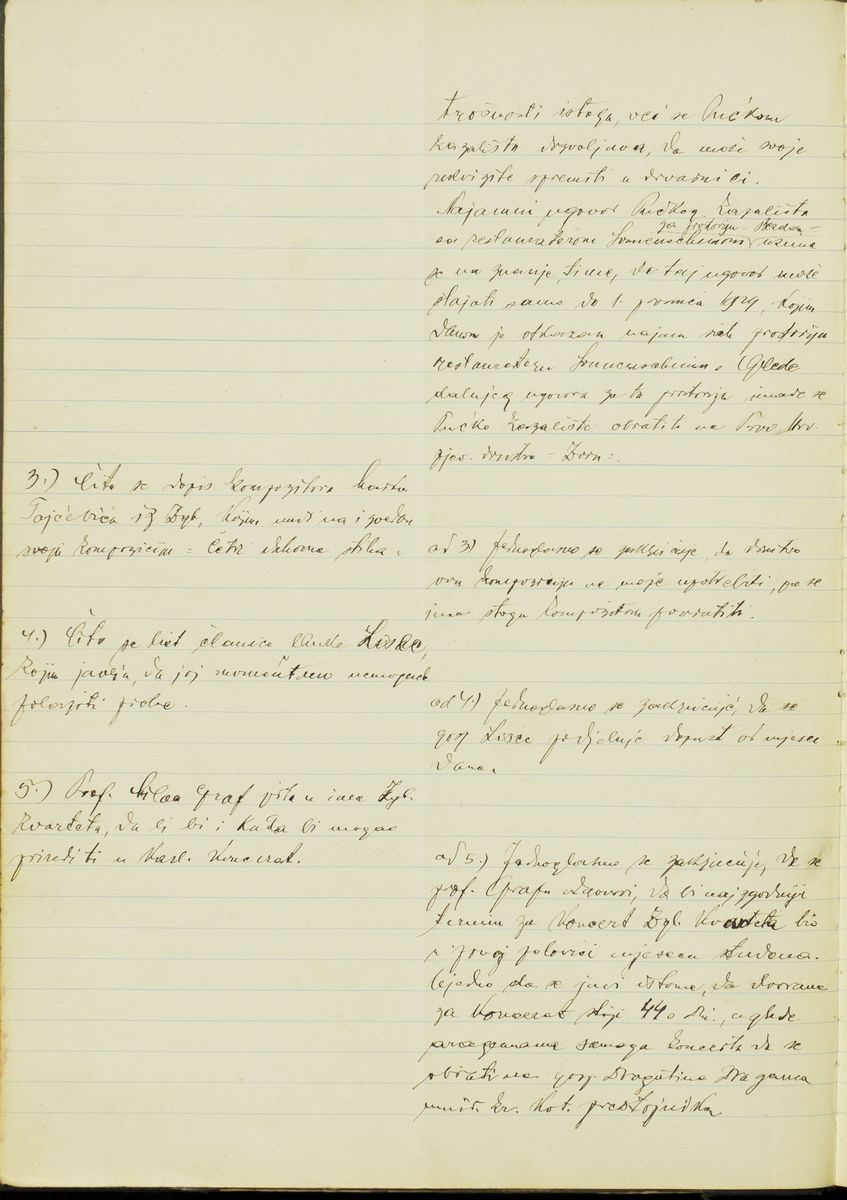 trošnosti istoga, već se Pučkom
kazalištu dozvoljava, da može svoje
rekvizite spremiti u drvarnici.
Najamni ugovor Pučkog Kazališta
za prostoriju
sa restauraterom Sonnenscheinom uzima
se na znanje, time, da taj ugovor može
stajati samo do 1. prosinca 1929, kojim
danom je otkazan najam tih prostorija
restaurateru Sonnenscheinu. Glede
daljnjeg ugovora za tu prostoriju imade se
Pučko Kazalište obratiti na Prvo Hrv.
pjev. društvo = Zora =.
3.) Čita se dopis kompozitora Marka
Tajčevića iz Zgb, kojim nudi na izvedbu
svoju kompoziciju = Četri duhovna stiha.
ad 3) Jednoglasno se zaključuje, da društvo
ovu kompoziciju ne može upotrebiti, pa se
ima stoga kompozitoru povratiti.
4.) Čita se list članice Lisac,
kojim javlja, da joj momentano nemoguće
polaziti probe.
ad 4.) Jednoglasno se zaključuje, da se
gosp Lisac podjeljuje dopust od mjesec
dana.
5.) Prof. Milan Graf pita u ime Zgb.
kvarteta, da li bi i kada bi mogao
prirediti u Karl. koncerat.
ad 5.) Jednoglasno se zaključuje, da se
prof. Grafu odgovori, da bi najzgodniji
termin za koncert Zgb. kvarteta bio
u prvoj polovici mjeseca studena.
Ujedno da se javi istome, da dvorana
za koncerat stoji 440 Din., a glede
aranžmana samoga koncerta da se
obrati na gosp. Dragutina
umir. kr. kot. predstojnika.